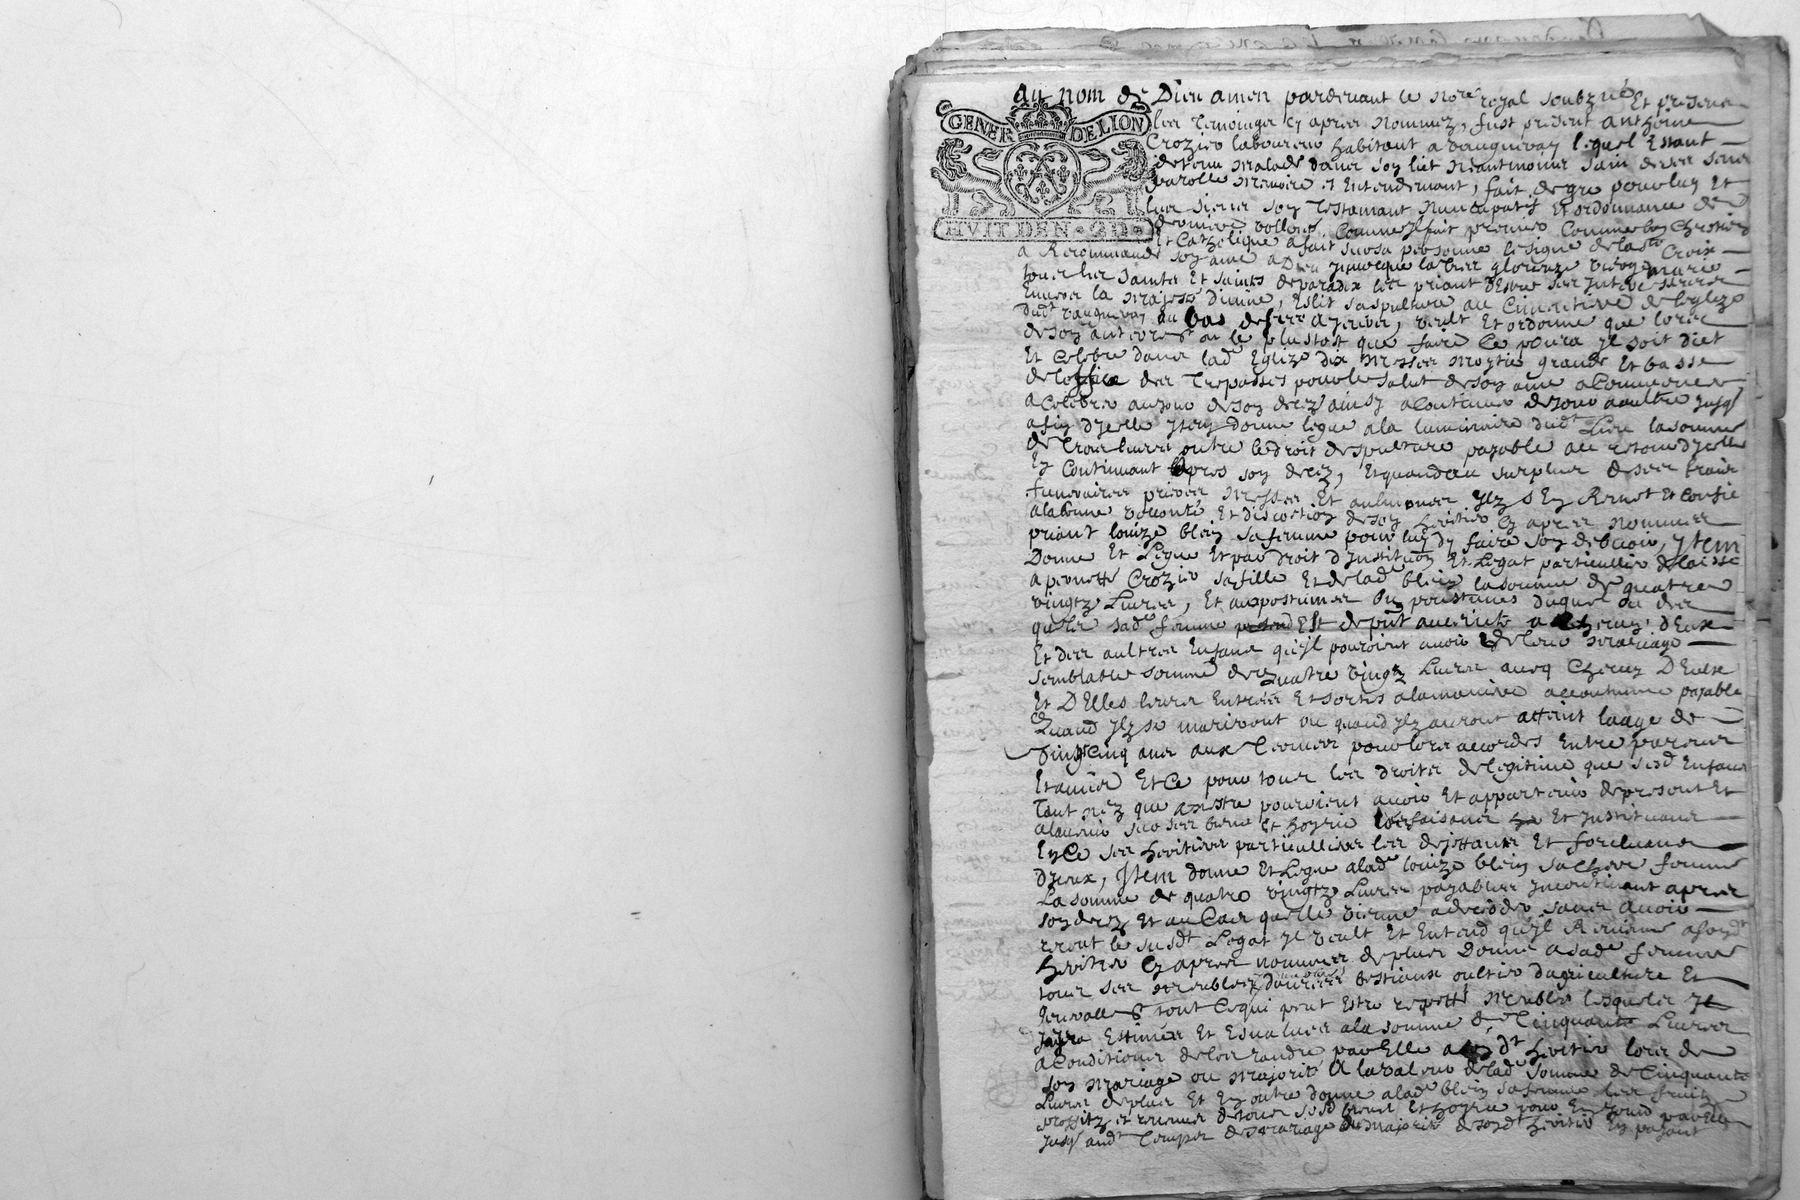 au nom de Dieu amen pardevant le No.re royal soubz né Et presens
GENER DE LION
les temoings cy apres Nommez, fust present anthoine
Crozier laboureur habitant a vauguenay lequel Estant
detenu malade dans son lict Neantmoins sain de ses sens
parolle memoire et Entendemant, fait de gre pour luy Et
les siens son Testamant Nuncupatif Et ordonnance de
HVIT DEN
derniere vollonté Comme sensuit premier Comme bon Chrestien
Et Catholique a fait sur sa personne le signe de la s.te Croix
a Recommandé son ame a Dieu Invocque la tres glorieuze vierge marie
tous les saints Et saints de paradix les priant d'Estre ses Intercesseurs
Envers la majesté divine, Eslit sa sepulture au Cimetierre de leglize
dud.t vauguenay au bas de veult Et ordonne que lors
de son Enterrem.t ou le plustost que faire Ce poura Il soit dict
Et Celebré dans lad.e Eglize dix Messes moytié grande Et basse
de loffice des Trepasses pour le salut de son ame a Commencer
a Celebrer au jour de son decez ainsy a Continuer de jour a aultre jusq.
a fin d'Icelle Item donne legue a la luminaire dud.t Lieu la somme
de Trois livres outre le droit de sepulture payable
En Continuant apres son decez, Et quand au surplus de ses fraix
funeraires prieres Messes Et aulmones Ilz s'En Remet Et Confie
a la bonne vollonté Et discretion de son heritier Cy apres Nommé
priant louize blein sa femme pour luy d'y faire son debvoir, Item
Donne Et Legue Et par droit d'Institution Et Legat particullier delaisse
a pernette Crozier sa fille Et de lad.e blein la somme de quatre
vingtz Livres, Et au postumes ou postumes duquel ou des
quels sad.e femme Est de p.nt Enceinte a Chacun d'Eux
Et des aultres Enfans qu'Il pouroient avoir de leur mariage
semblable somme de quatre vingtz Livres avecq Chacun D'Eulx
Et D'Elles leurs Entrées Et sorties a la maniere accoutumé payable
Quand Ilz se mariront ou quand Ilz auront atteint laage de
vingt Cinq ans aux Termes pour lors accordes Entre parens
Et amis Et Ce pour tous les droits de legitime que sesd. Enfans
Tant nez que a naistre pouroient avoir Et appartenir de present Et
a ladvenir sur ses biens Et hoyrie les faisant Et Instituant
En Ce ses heritiers particulliers les dejettant Et forcluant
d'Iceux, Item donne Et Legue a lad.e louize blein sa Chere femme
La somme de quatre vingtz Livres payables Incontinant apres
son decez Et au Cas quelle vienne a deceder sans avoir
receut le susd.t Legat Il veult Et Entend qu'Il Revienne a sond.t
heritier Cy apres nommé de plus Donne a sad.e femme
tous ses meubles bestiaux outils d'agriculture Et
generallem.t tout Ce qui peut Estre reputé Meubles lesquels Il
a Estimés Et Esvalués a la somme de Cinquante Livres
a Condition de les rendre par Elle a sond.t heritier lors de
son mariage ou Majorité a la valeur de lad.e somme de Cinquante
Livres de plus Et En outre donne a lad.e blein sa femme les fruitz
proffitz et revenus de tous sesd. biens Et hoyrie pour En jouir par Elle
jusq. aud.t Temps de mariage ou Majorité de sond.t heritier En payant